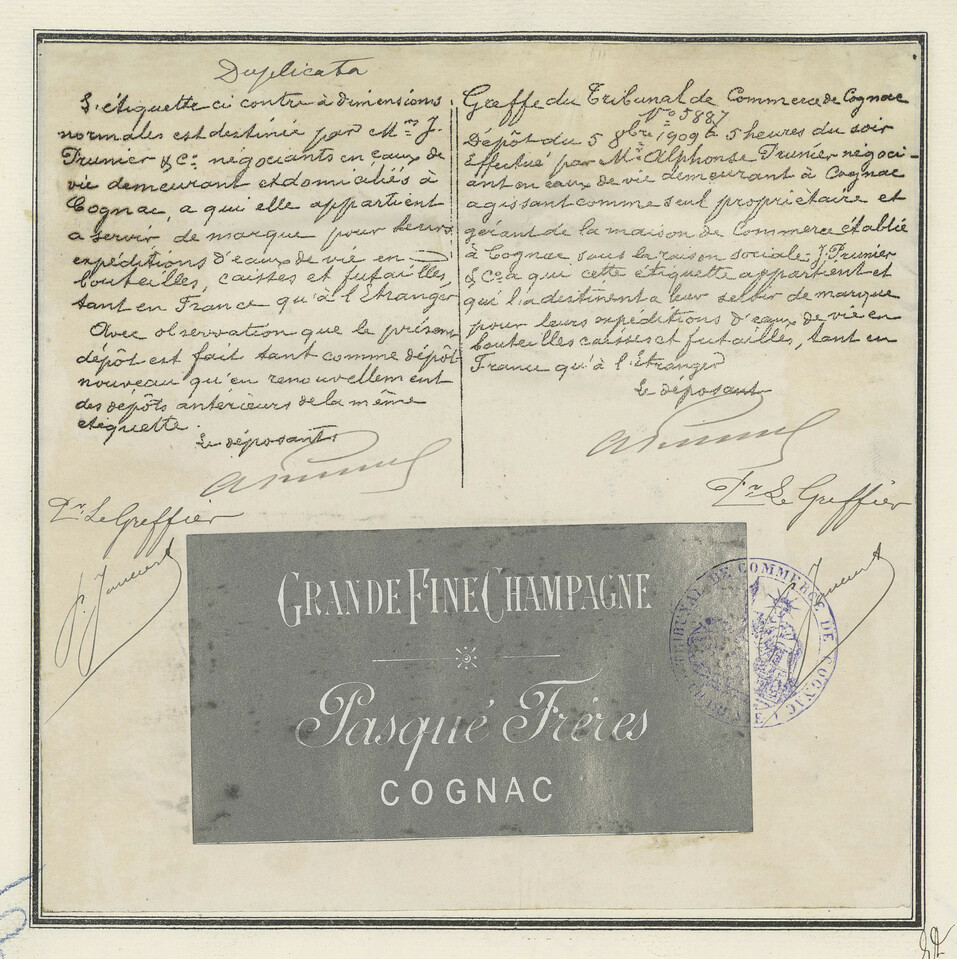 Duplicata
L'étiquette ci contre à dimensions
normales est destinée par Mrs J.
Prunier & Co négociants en eaux de
vie demeurant et domiciliés à
Cognac, a qui elle appartient
a servir de marque pour leurs
expéditions d'eaux de vie en
bouteilles, caisses et futailles
tant en France qu'à l'Etranger
Avec observation que le présent
dépôt est fait tant comme dépôt
nouveau qu'en renouvellement
des dépôts antérieurs de la même
etiquette.
Le déposant
Pr Le Greffier
Greffe du Tribunal de Commerce de Cognac
No 5887
Dépôt du 5 8bre 1909 à 5 heures du soir
Effectué par Mr Alphonse Prunier négoci-
ant en eaux de vie demeurant à Cognac
agissant comme seul propriétaire et
gérant de la maison de Commerce établie
à Cognac sous la raison sociale J. Prunier
& Co a qui cette étiquette appartient et
qui l'a destinent a leur servir de marque
pour leurs expéditions d'eaux de vie en
bouteilles caisses et futailles, tant en
France qu'à l'Etranger
Le déposant
Pr Le Greffier
GRANDE FINE CHAMPAGNE
Pasqué Frères
COGNAC
TRIBUNAL DE COMMERCE DE COGNAC